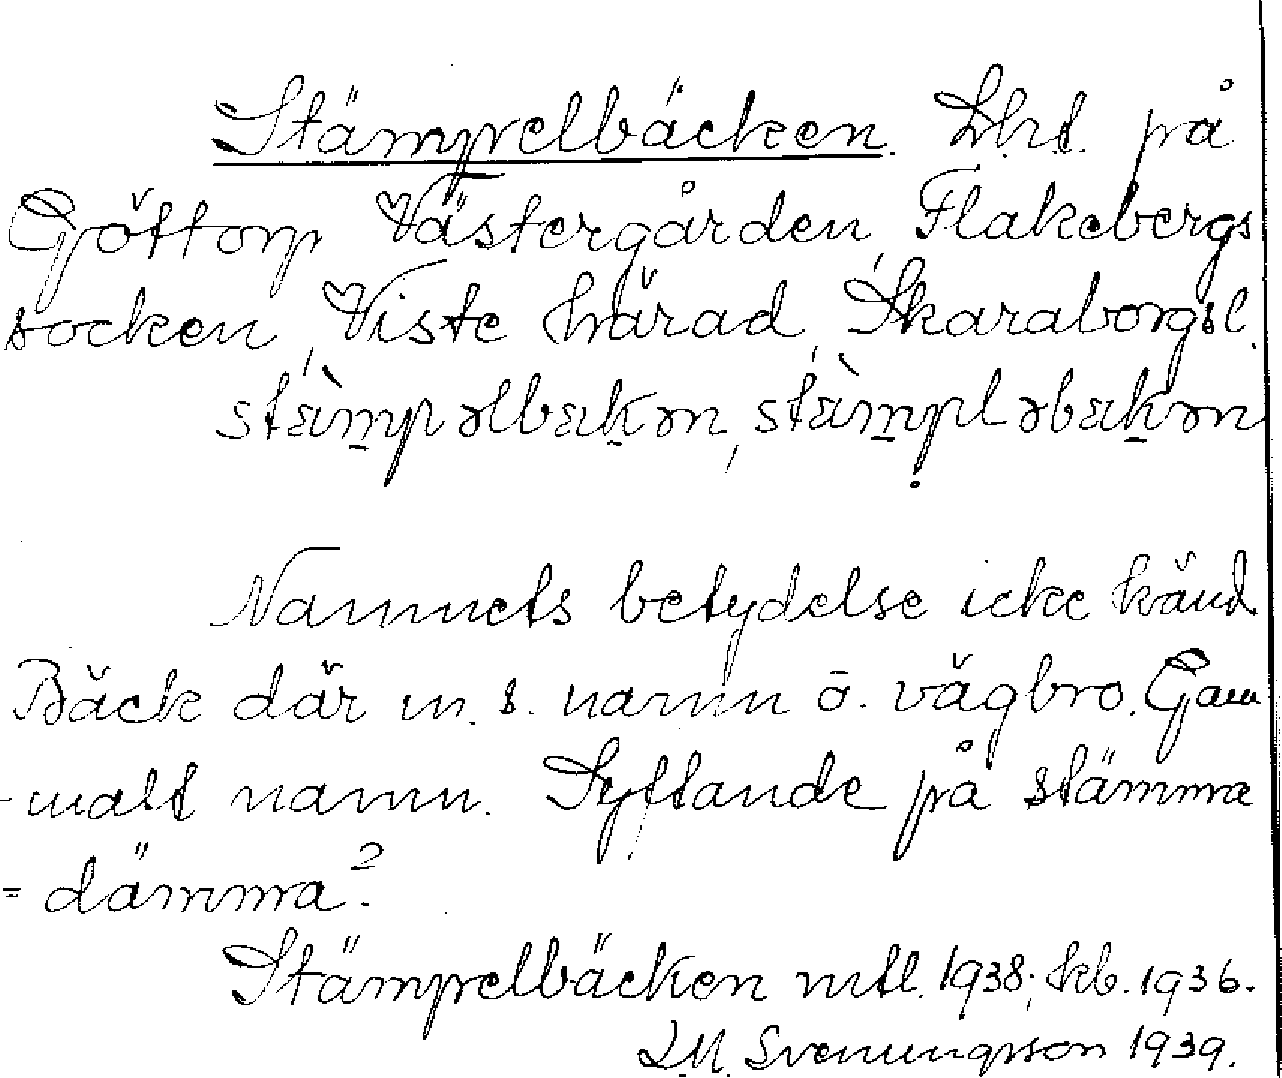 Stämpelbäcken. Lht. på
Göttorp Västergården, Flakebergs
socken, Viste härad, Skaraborgsl.
stæ̀m̲pəlbæk̲ən, stæ̀m̲pləbæk̲ən
Namnets betydelse icke känd
Bäck där m. s. namn o. vägbro. Gam
-malt namn. Syftande på stämma
= dämma?
Stämpelbäcken mtl. 1938; kb. 1936.
Svenungsson 1939.